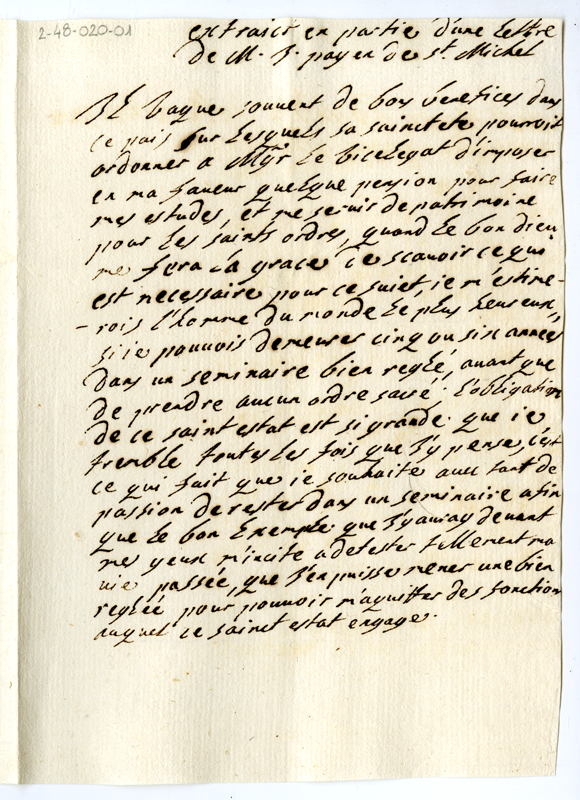 2-48-020-01
extraict en partie d'une lettre
de M. J. payen de St. Michel
Il vaque souvent de bons benefices dans
ce pais sur lesquels sa saincteté pourroit
ordonner a Mgr le vicelegat d'imposer
en ma faveur quelque pension pour faire
mes estudes, et me servir de patrimoine
pour les saints ordres, quand le bon dieu
me fera la grace de scavoir ce qui
est necessaire pour ce suiet, ie m'estime-
rois l'homme du monde le plus heureux,
si ie pouvois demeurer cinq ou six années
dans un seminaire bien reglé, avant que
de prendre aucun ordre sacré; l'obligation
de ce saint estat est si grande que ie
tremble toutes les fois que j'y pense, c'est
ce qui fait que ie souhaite avec tant de
passion de rester dans un seminaire afin
que le bon exemple que j'y auray devant
mes yeux m'incite a detester tellement ma
vie passée, que j'en puisse mener une bien
reglée pour pouvoir m'aquitter des fonction
auquel ce sainct estat engage.